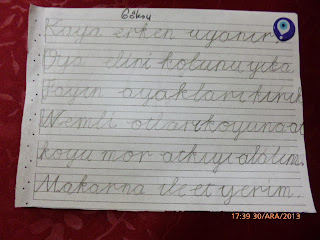 Göksu
Kaya erken uyanır.
Oya elini kolunu yıka
ayakları kırık
Nemli otları koyuna at
koyu mor atkıyı alalım.
Makarna ile et yerim.
17:39 30/ARA/2013